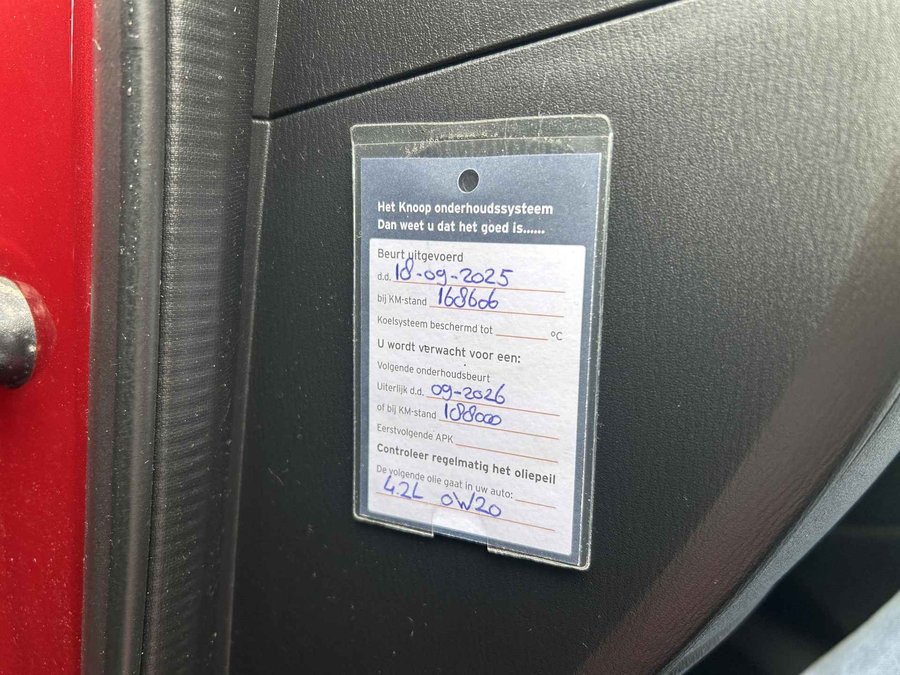 Het Knoop onderhoudssysteem
Dan weet u dat het goed is......
Beurt uitgevoerd
d.d. 18-09-2025
bij KM-stand 168606
Koelsysteem beschermd tot ______ °C
U wordt verwacht voor een:
Volgende onderhoudsbeurt
Uiterlijk d.d. 09-2026
of bij KM-stand 188000
Eerstvolgende APK
Controleer regelmatig het oliepeil
De volgende olie gaat in uw auto:
4.2L 0W20